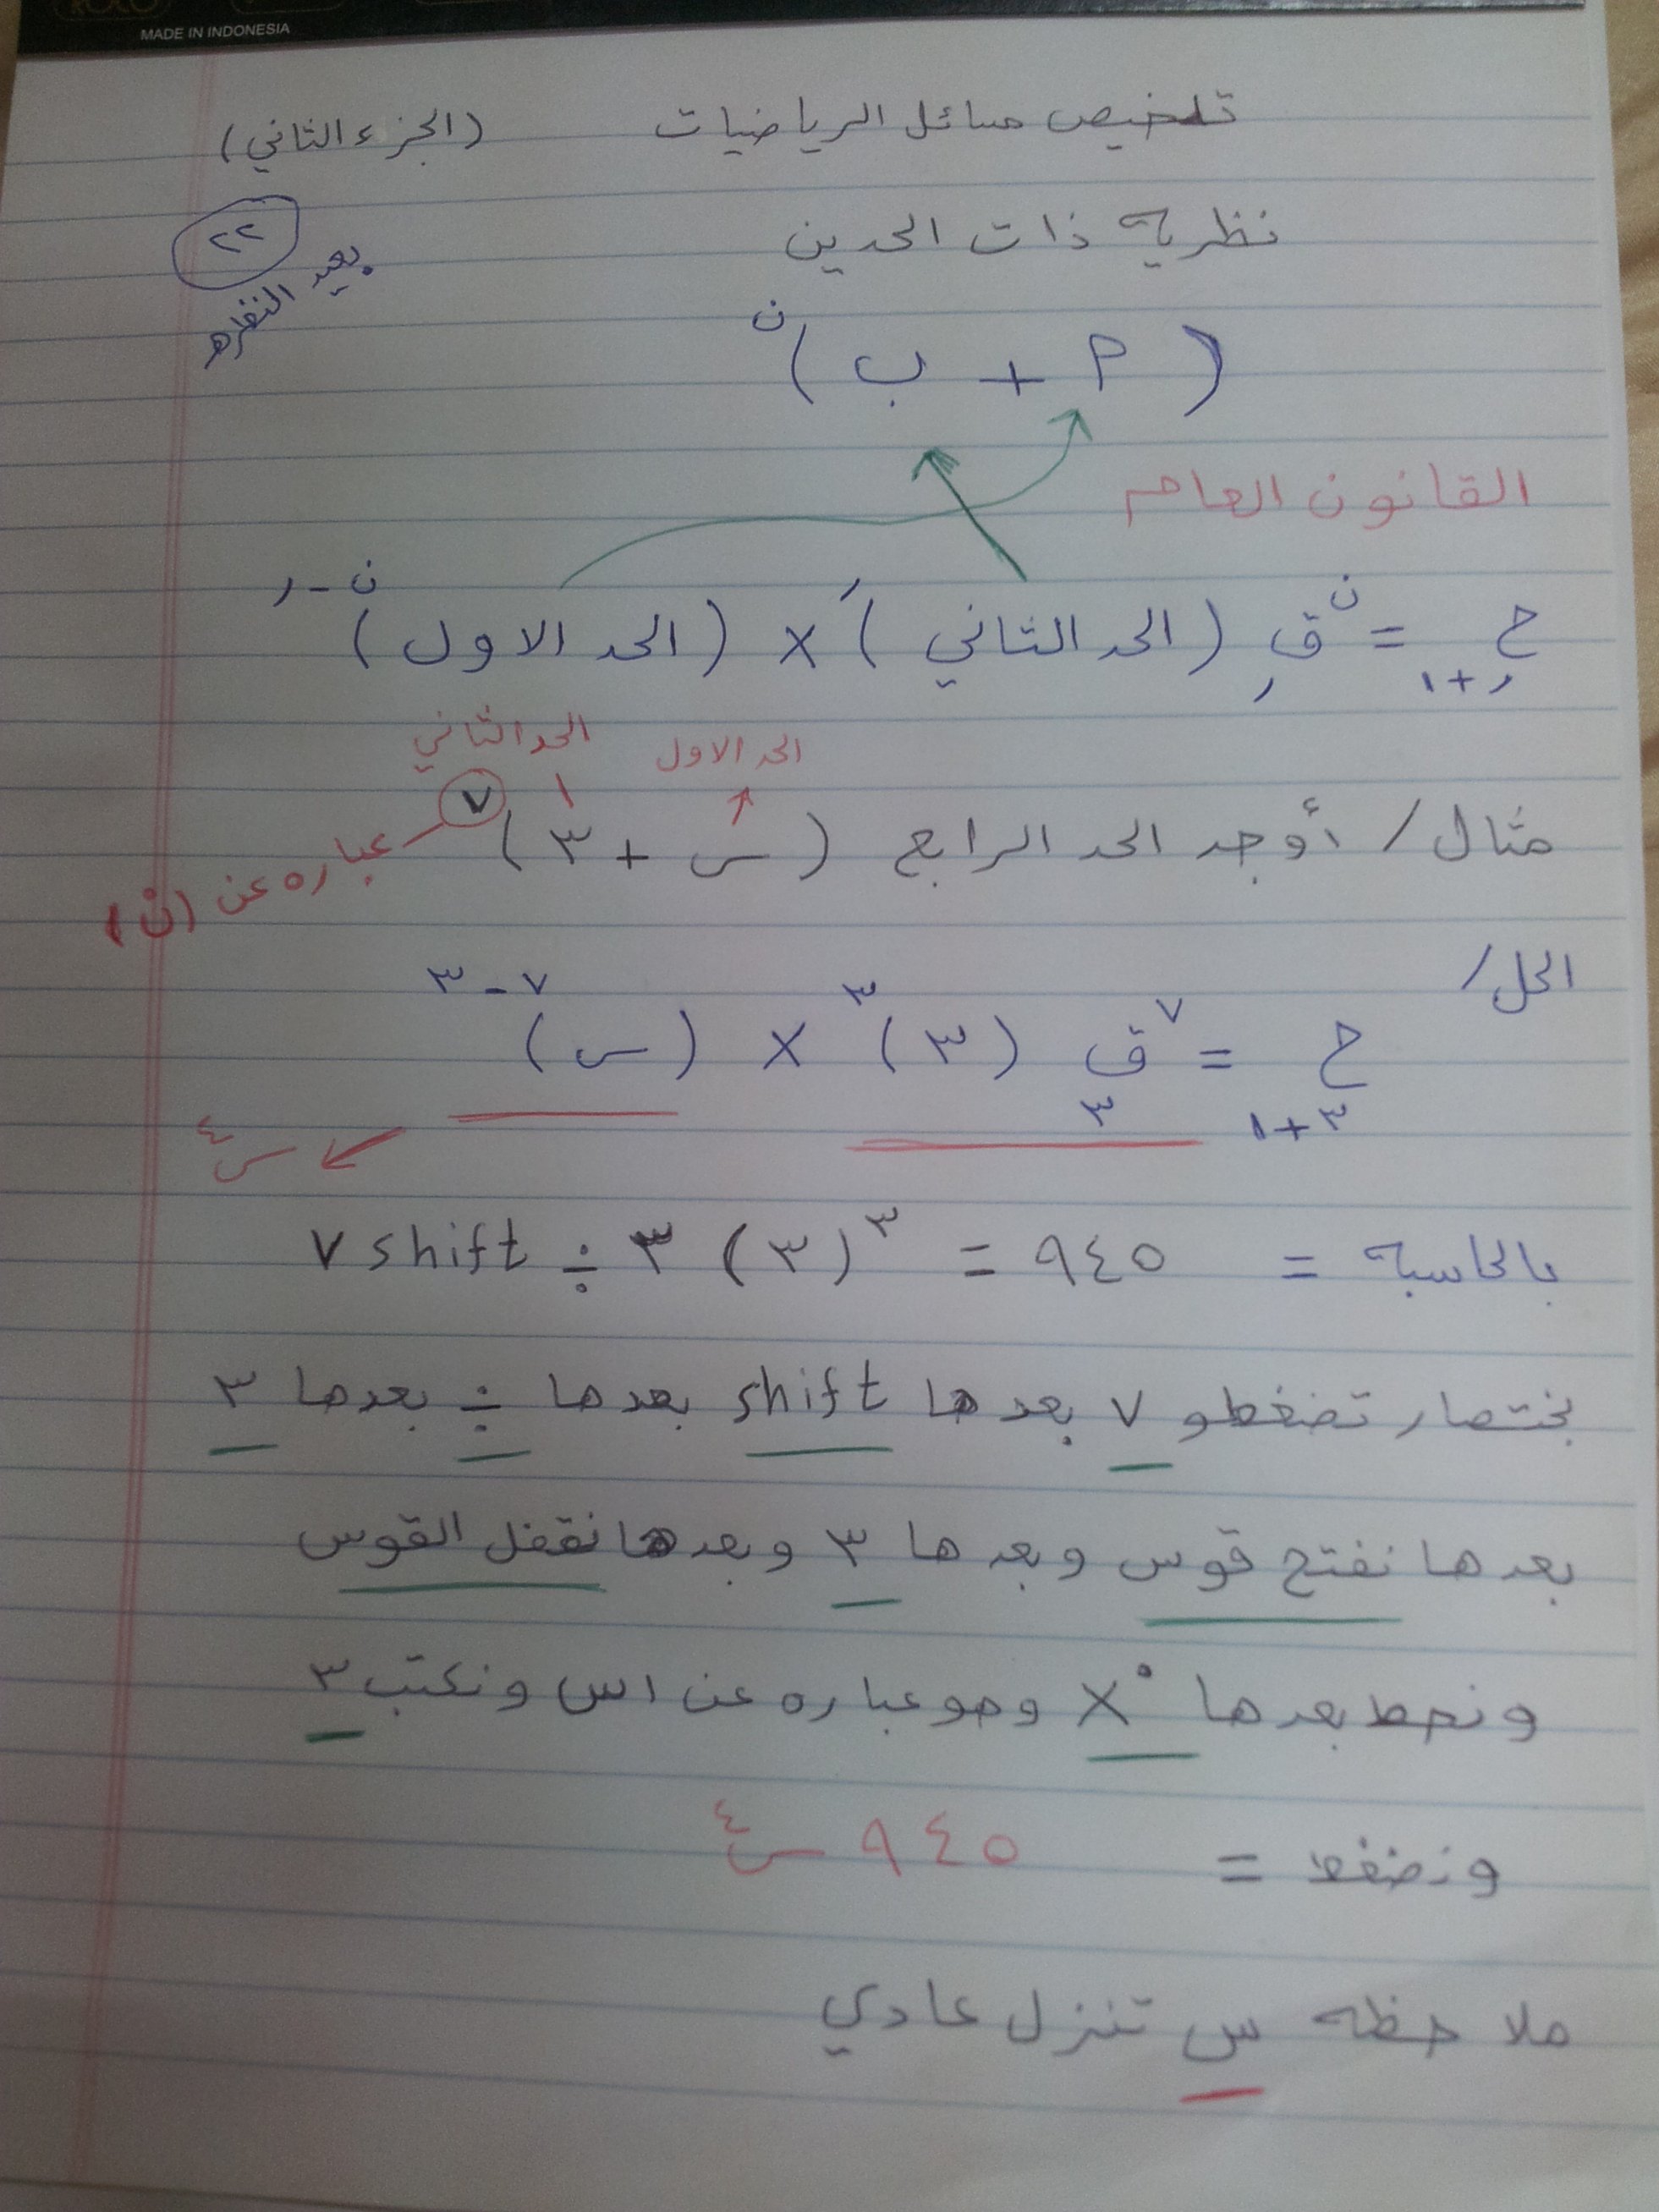 MADE IN INDONESIA
تلخيص مسائل الرياضيات (الجزء الثاني)
٢٢
نظريه ذات الحدين
بعيد النظره
(أ + ب)^ن
القانون العام
ح ر+١ = ن ق ر (الحد الثاني)^ر × (الحد الاول)^ن-ر
الحد الاول الحد الثاني
مثال / أوجد الحد الرابع (س + ٣)^٧
عباره عن (ن)
الحل /
ح ٣+١ = ٧ ق ٣ (٣)^٣ × (س)^٧-٣
س^٤
بالحاسبه = ٧ shift ÷ ٣ (٣)^٣ = ٩٤٥
بختصار تضغطو ٧ بعدها shift بعدها ÷ بعدها ٣
بعدها نفتح قوس وبعدها ٣ وبعدها نقفل القوس
ونحط بعدها X° وهو عباره عن اس ونكتب ٣
ونضغط = ٩٤٥ س^٤
ملاحظه س تنزل عادي